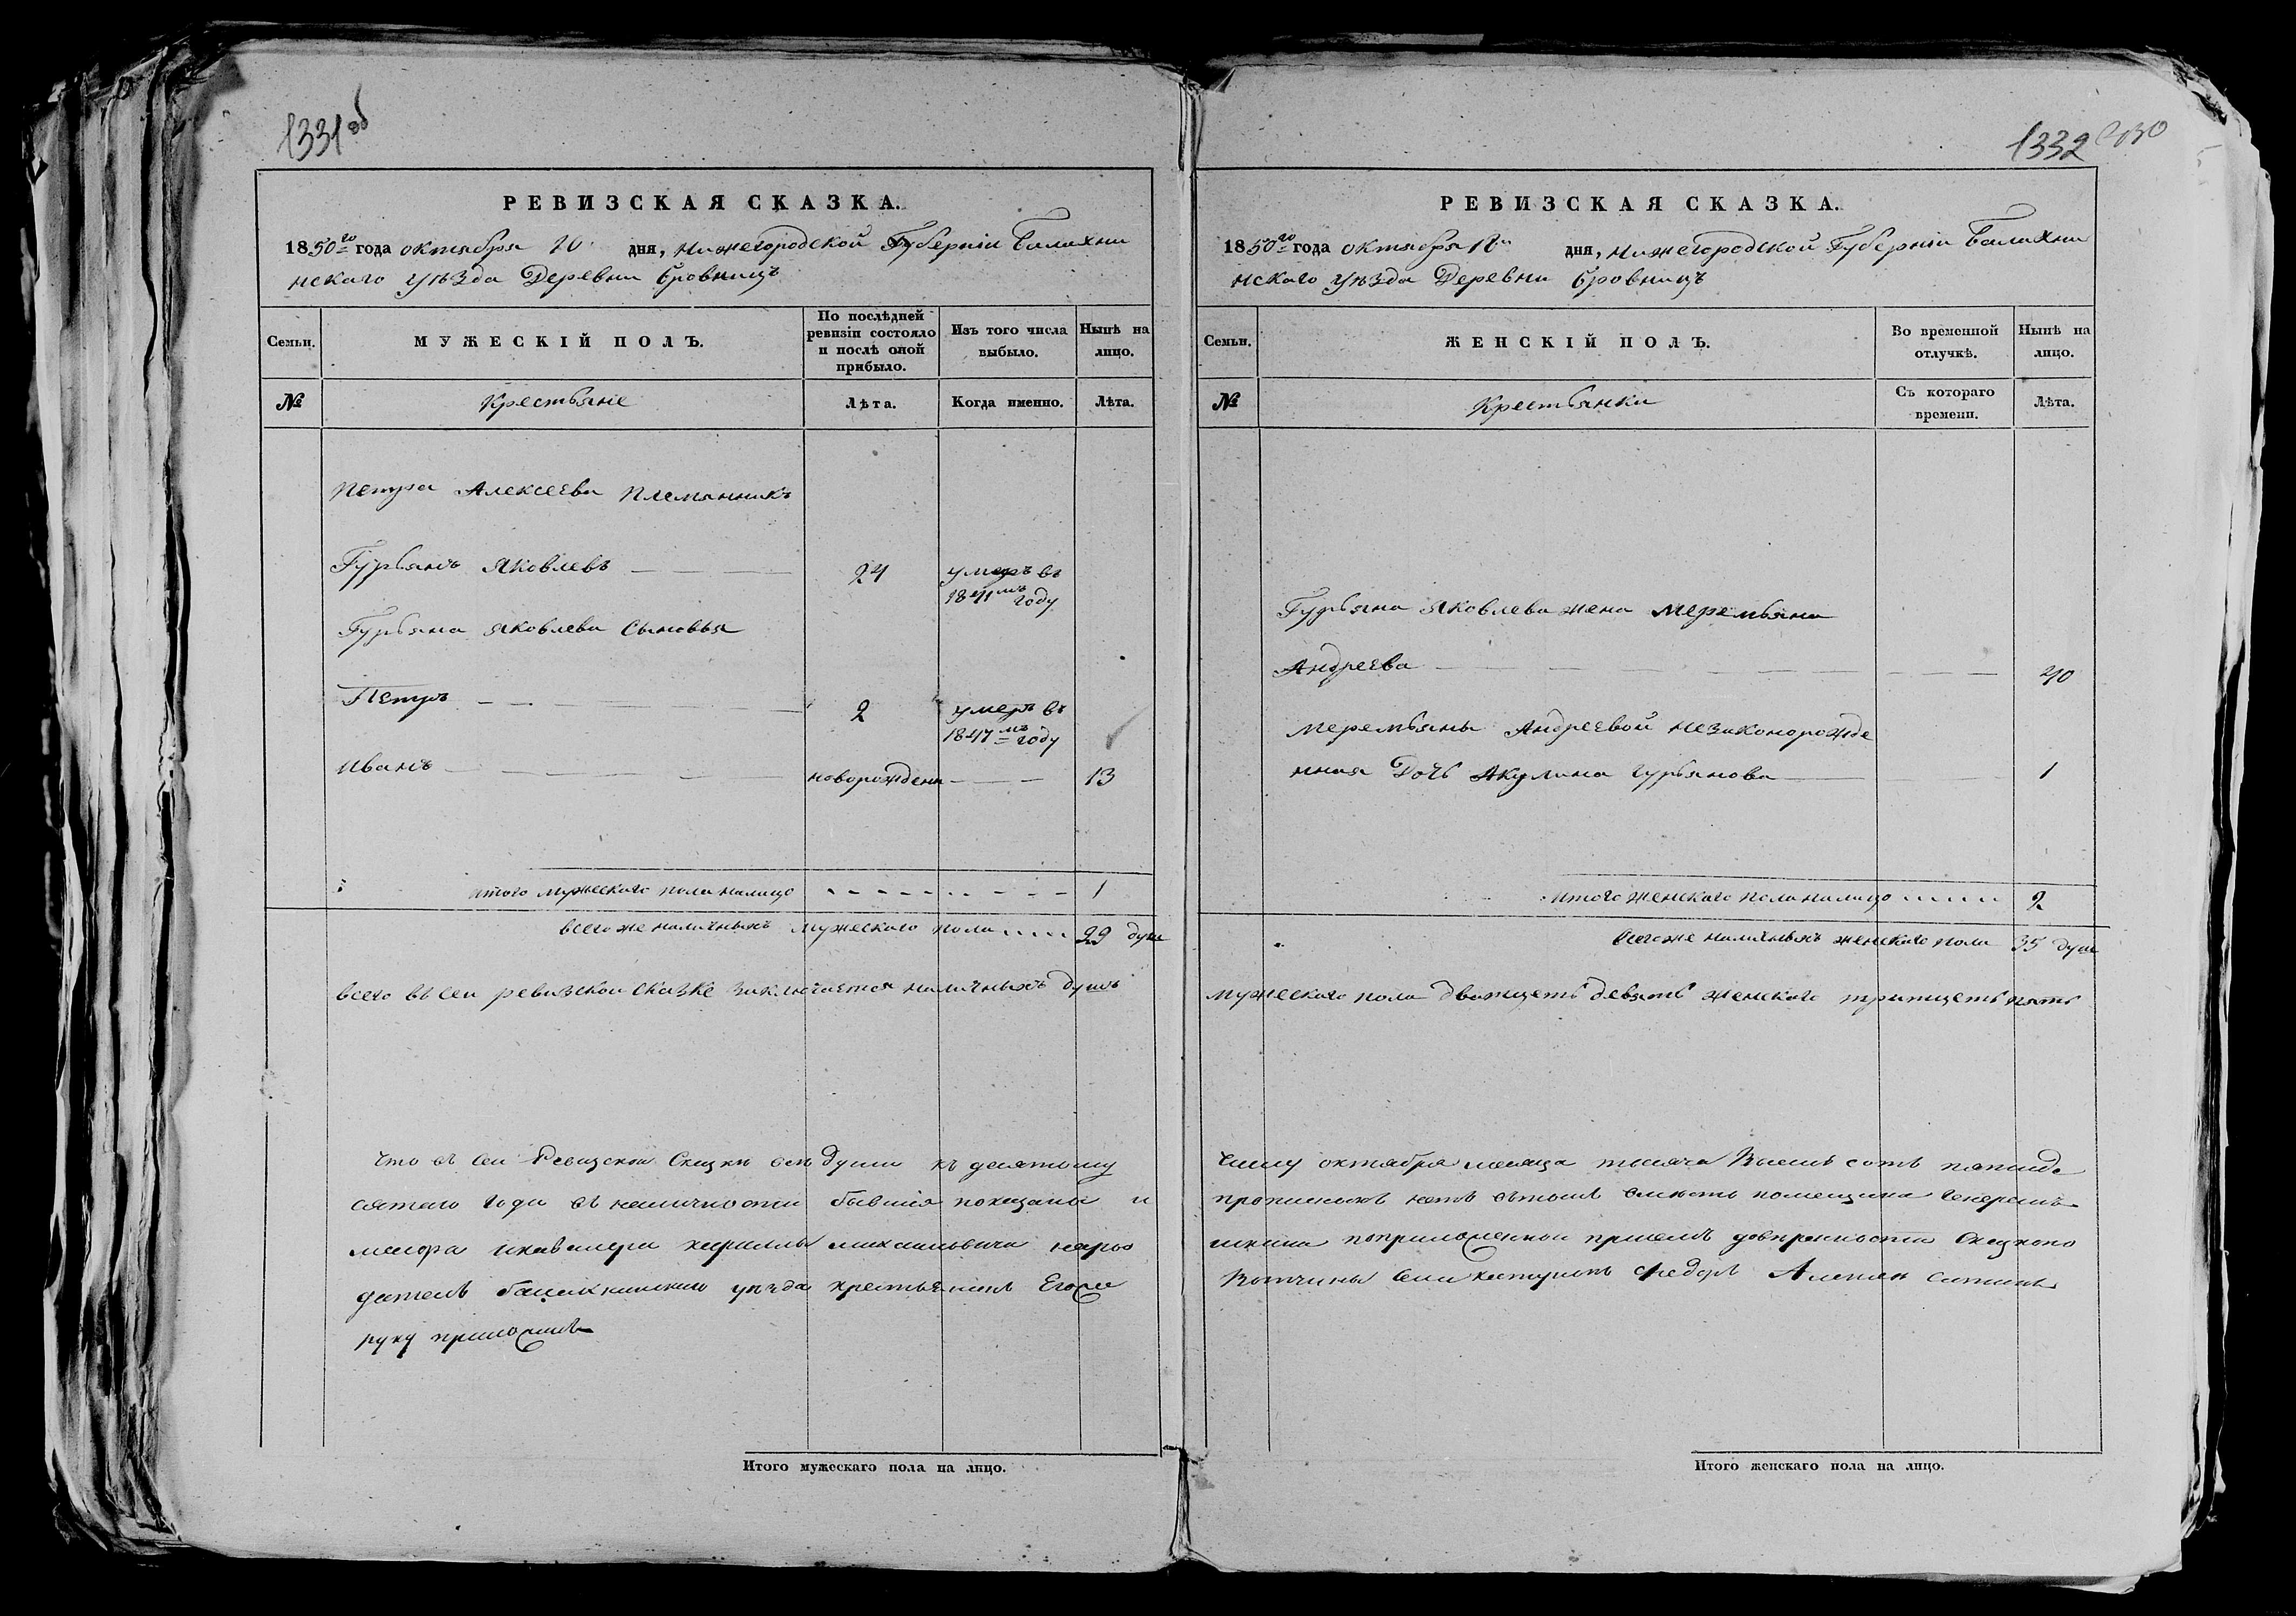 1331об
РЕВИЗСКАЯ СКАЗКА.
1850го года октября 10 дня, Нижегородской Губерніи Балахни
нскаго уѣзда Деревни Бровницъ
Семьи.
МУЖЕСКІЙ ПОЛЪ.
По послѣдней ревизіи состояло и послѣ оной прибыло.
Изъ того числа выбыло.
Нынѣ на лицо.
№
Крестьяне
Лѣта.
Когда именно.
Лѣта.
Петра Алексеева племянникъ
Гурьянъ Яковлевъ 24 умеръ въ
1841мъ году
Гурьяна Яковлева сыновья
Петръ 2 умеръ въ
1847мъ году
Иванъ новорожденъ 13
итого мужескаго пола налицо 1
всего же наличныхъ мужескаго пола 29 душ
всего въ сеи ревизскои сказке заключается наличныхъ душъ
Что въ сеи Ревизскои Сказки все души къ десятому
сятаго года въ наличности бывшия показаны и
маиора икавалера кирилы михаиловича нарыш
дателъ балахнинскаго уезда крестьянинъ Егоръ
руку приложилъ
1332
РЕВИЗСКАЯ СКАЗКА.
1850го года октября дня, Нижегородской Губерніи Балахни
нскаго уѣзда Деревни Бровницъ
Семьи.
ЖЕНСКІЙ ПОЛЪ.
Во временной отлучкѣ.
Нынѣ на лицо.
№
Крестьянки
Съ котораго времени.
Лѣта.
Гурьяна Яковлева жена Меремьяна
Андреева 40
Меремьяны Андреевой незаконорожде
нная дочь Акулина Гурьянова 1
Итого женскаго пола налицо 2
всего же наличныхъ женскаго пола 35 душ
мужескаго пола дватцеть девять женскаго тритцеть пять
числу октября месяца тысяча восемъ сотъ пятиде
прописныхъ нетъ вътомъ вместо помещика генералъ
шкина поприложеннои присемъ доверенности
вотчины Федоръ
Итого мужескаго пола на лицо.
Итого женскаго пола на лицо.